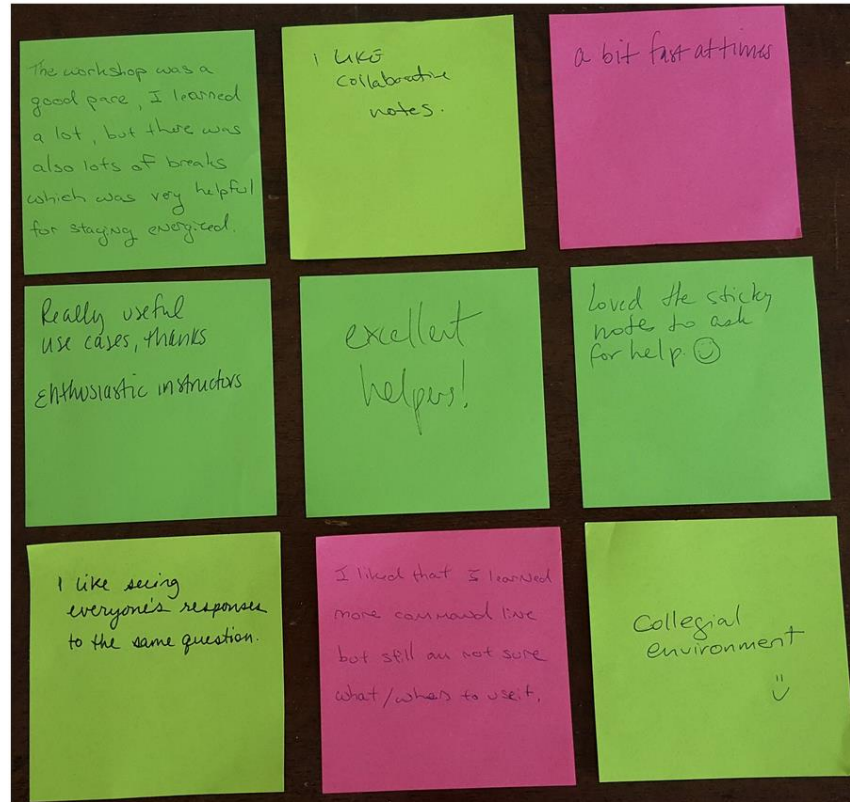 The workshop was a
good pace, I learned
a lot, but there was
also lots of breaks
which was very helpful
for staying energized.
I LIKE
collaborative
notes.
a bit fast at times
Really useful
use cases, thanks
Enthusiastic instructors
excellent
helpers!
Loved the sticky
notes to ask
for help. ☺
I like seeing
everyone's responses
to the same question.
I liked that I learned
more command line
but still am not sure
what/when to use it.
Collegial
environment